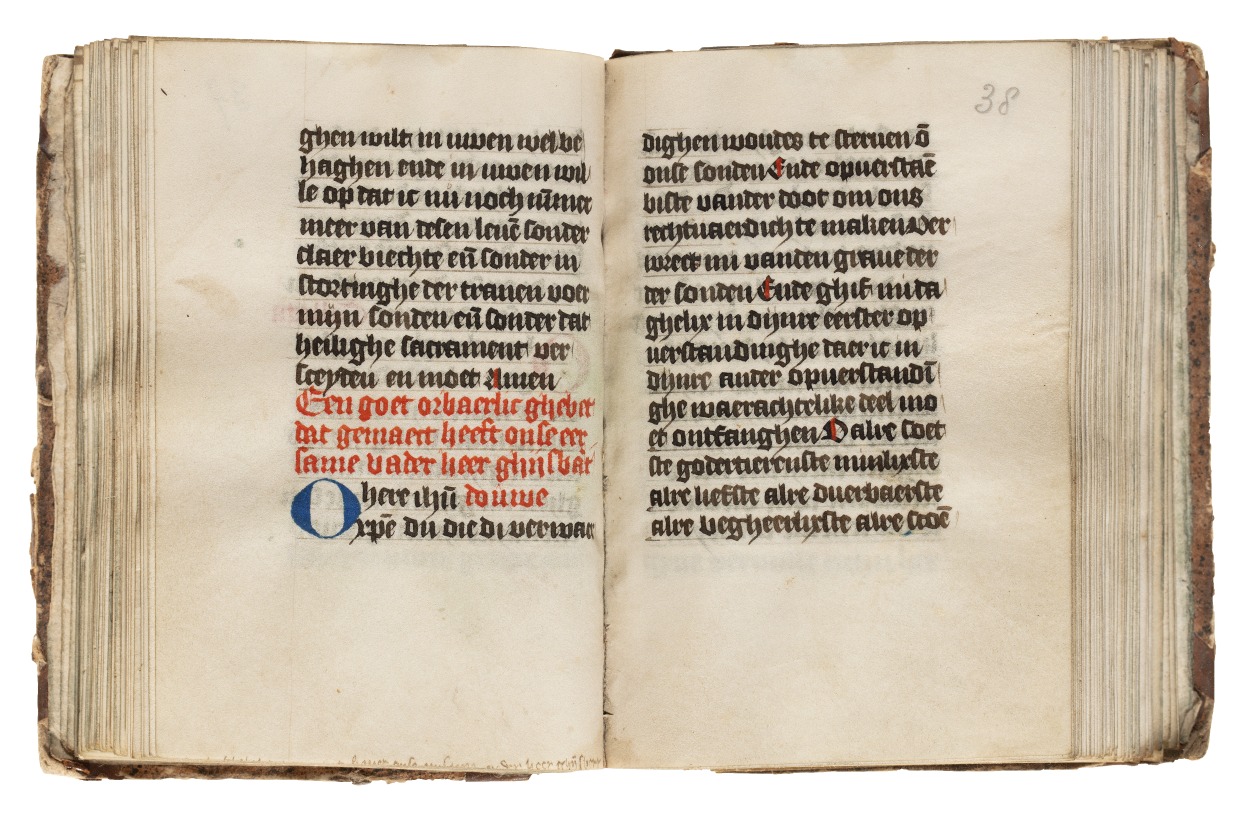 ghen wilt in uwen welbe
haghen ende in uwen wil
le op dat ic nu noch nūmer
meer van desen leuē sonder
claer biechte eñ sonder in
stortinghe der tranen voer
mijn sonden eñ sonder dat
heilighe sacrament ver
sceyden en moet Amen
Een goet orbaerlic ghebet
dat gemaect heeft onse eer
same vader heer ghijsbat
O here ihū douwe
xpē du die di verwaer
38
dighen woudes te steruen ō
onse sonden Ende opuerstaē
biste vander doot om ons
rechtuaerdich te maken Ver
wreck mi vanden graue der
der sonden Ende ghif mi da
ghelix in dijnre eerster op
uerstandinghe daer ic in
dijnre ander opuerstandī
ghe waerachtelike deel mo
et ontfanghen O alre soet
ste godertierenste minlixste
alre liefste alre duerbaerste
alre begheerlixste alre scoē